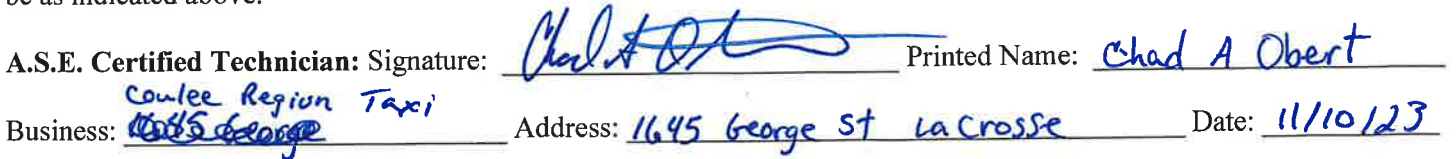 be as indicated above.
A.S.E. Certified Technician: Signature: Chad A Printed Name: Chad A Obert
Coulee Region Taxi
Business: 1645 George Address: 1645 George St La Crosse Date: 11/10/23